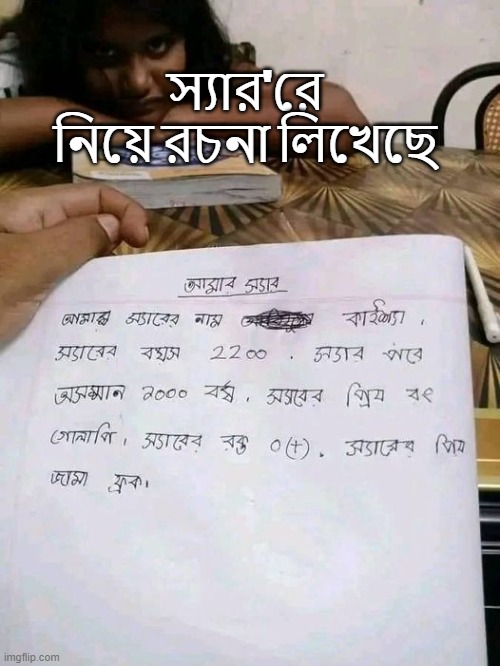 স্যার'রে
নিয়ে রচনা লিখেছে
আমার স্যার
আমার স্যারের নাম কাইল্যা।
স্যারের বয়স 2200. স্যার পরে
অসম্মান ২০০০ বর্ষ. স্যারের প্রিয় রং
গোলাপি, স্যারের রক্ত O(+). স্যারের প্রিয়
জামা ফ্রক।
imgflip.com